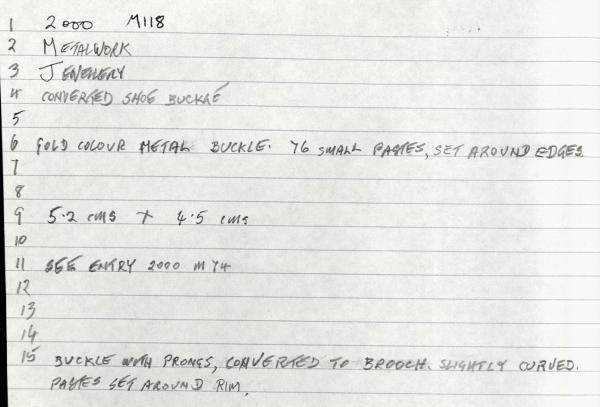 1 2000 M118
2 METALWORK
3 JEWELLERY
4 CONVERTED SHOE BUCKLE
5
6 GOLD COLOUR METAL BUCKLE. 76 SMALL PASTES, SET AROUND EDGES.
7
8
9 5.2 cms X 4.5 cms
10
11 SEE ENTRY 2000 M 74
12
13
14
15 BUCKLE WITH PRONGS, CONVERTED TO BROOCH. SLIGHTLY CURVED.
PASTES SET AROUND RIM.